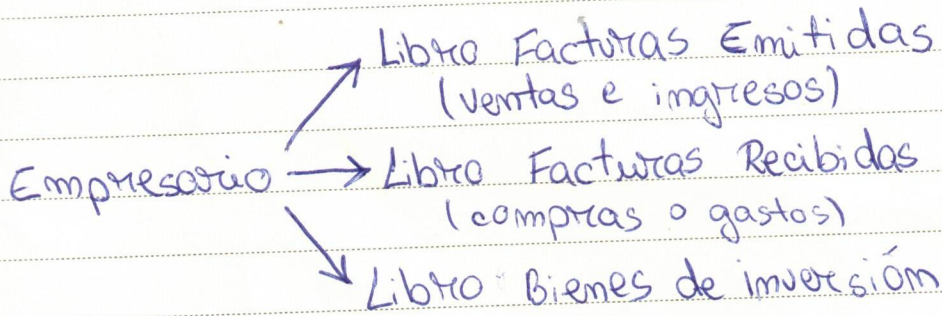 Libro Facturas Emitidas
(ventas e ingresos)
Empresario
Libro Facturas Recibidas
(compras o gastos)
Libro Bienes de inversión